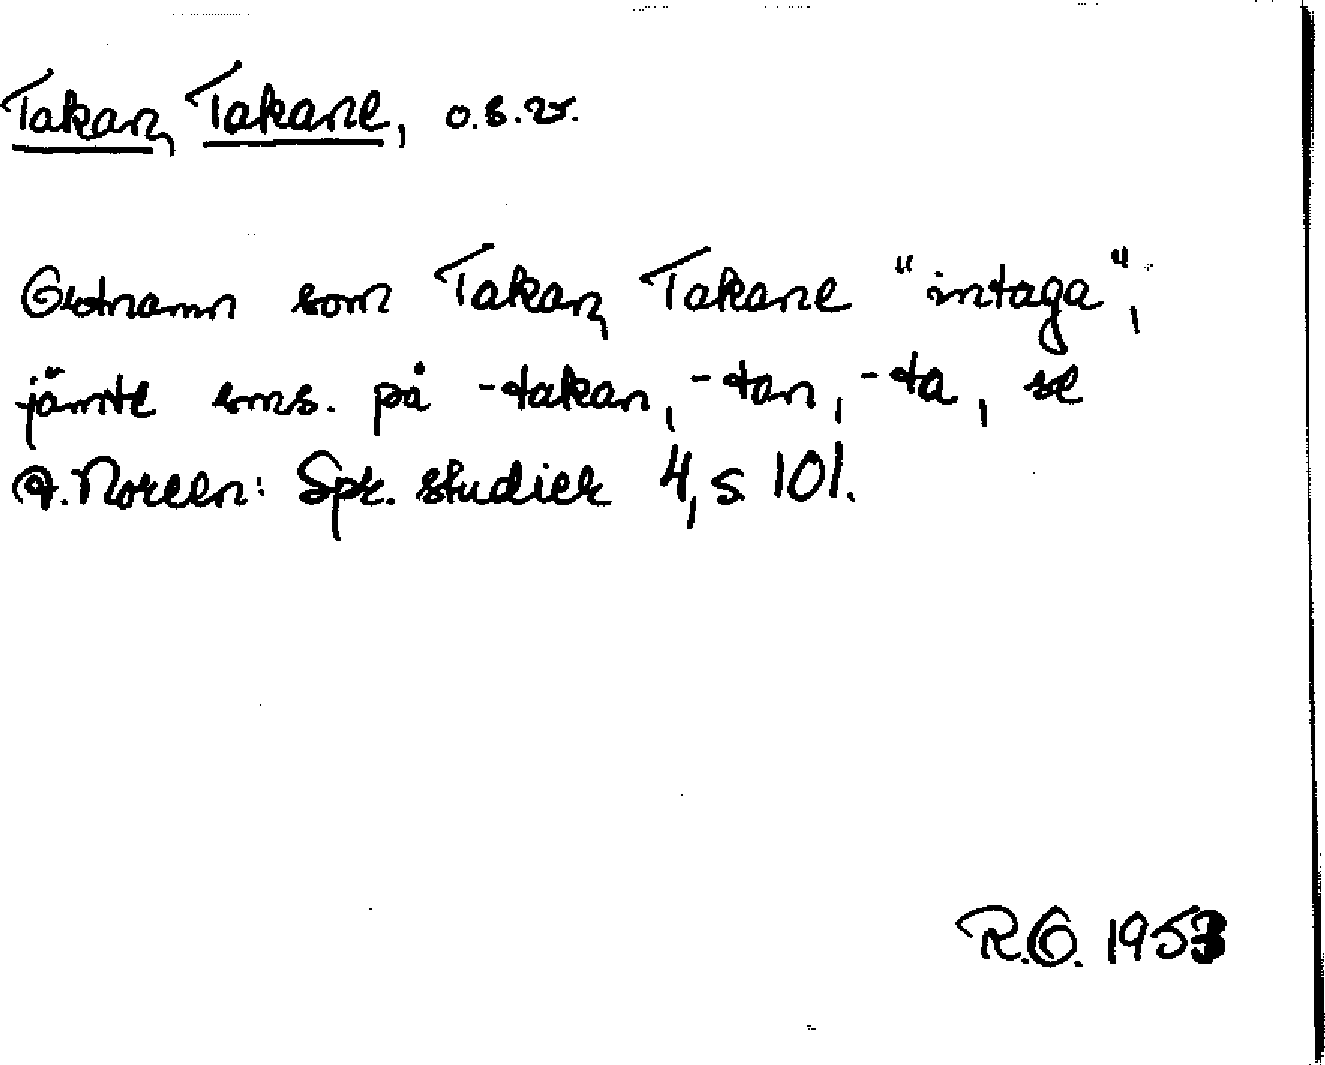 Takan, Takane, o.s.v.
Ortnamn som Takan, Takane "intaga",
jämte sms. på -takan, -tan, -ta, se
A. Noreen: Spr. studier 4, s 101.
R.O. 1953